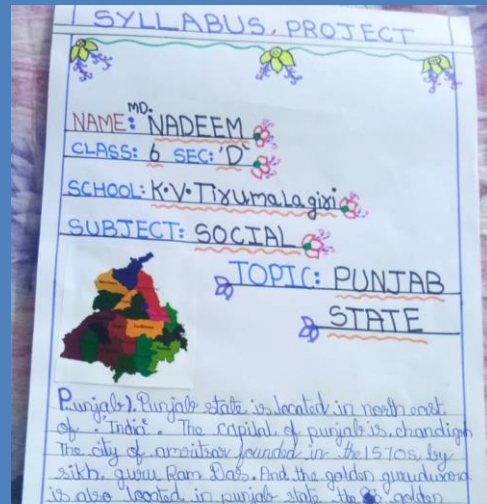 SYLLABUS PROJECT
MD.
NAME: NADEEM
CLASS: 6 SEC: 'D'
SCHOOL: K.V.Tirumalagiri
SUBJECT: SOCIAL
TOPIC: PUNJAB
STATE
Punjab). Punjab state is located in north east
of "India". The capital of punjab is chandigh
The city of amritsar founded in the 1570s, by
sikh guru Ram Das. And the golden guruduwara
is also located in punjab state, the golden